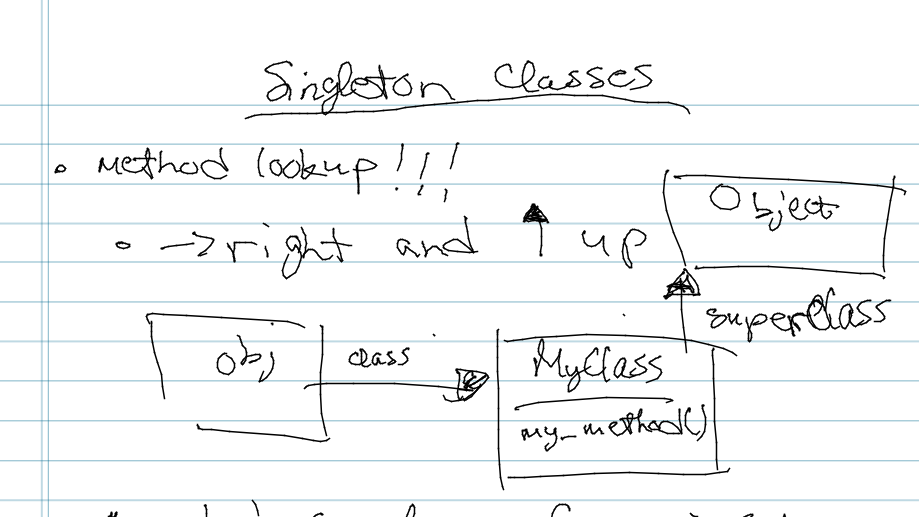 Singleton Classes
• method lookup!!!
• → right and ↑ up
Object
superclass
obj
class
MyClass
my_method()